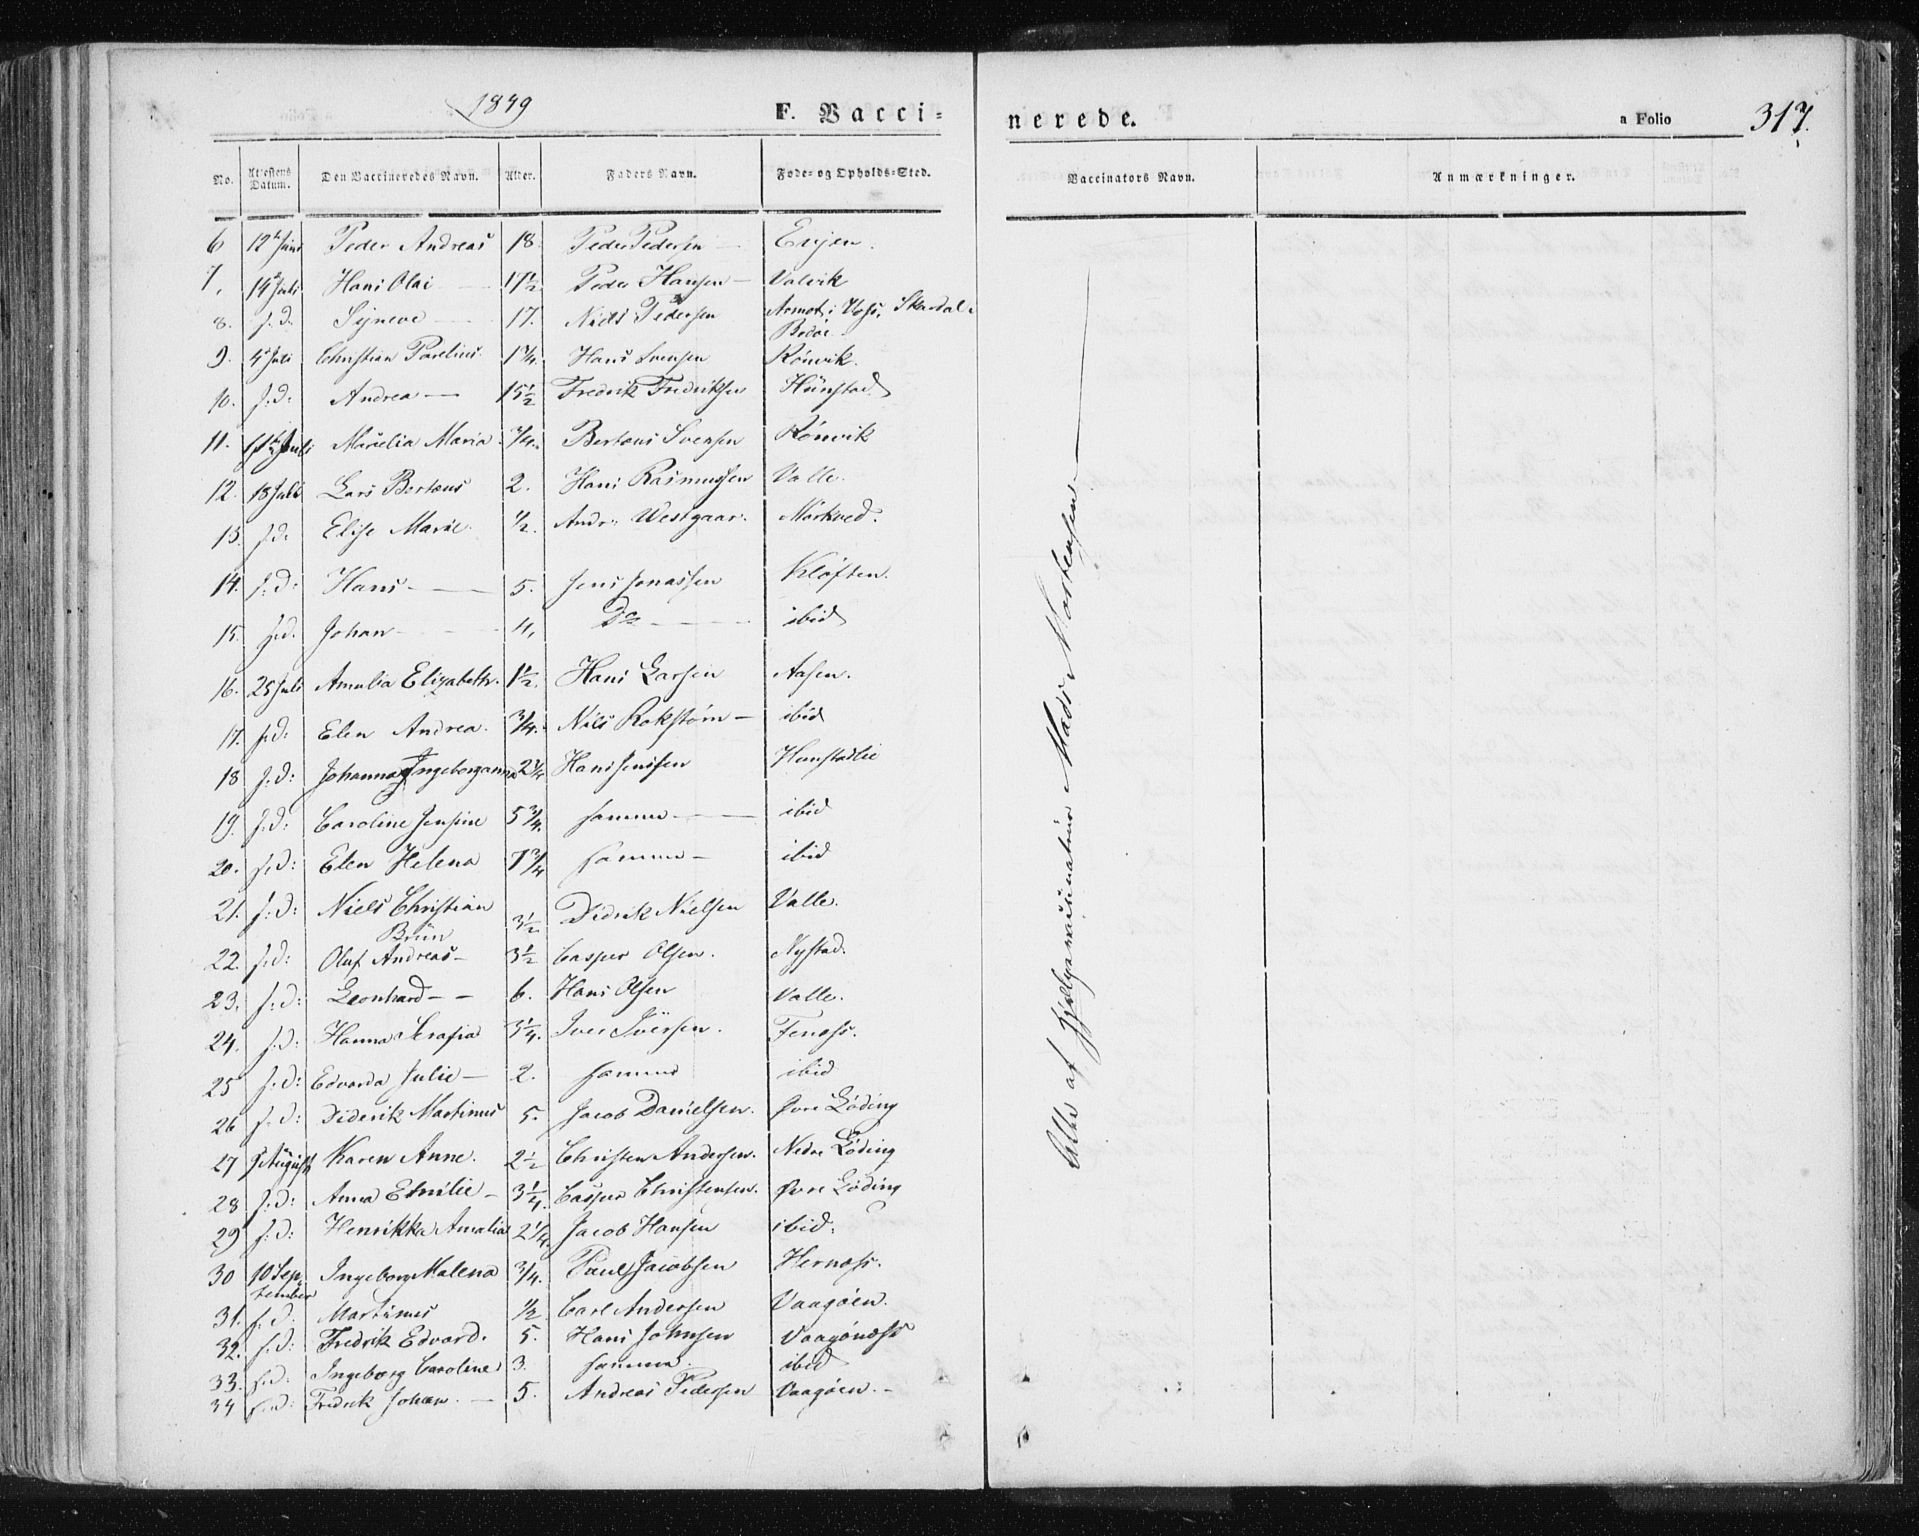 1849
F. Vacci-
nerede.
a Folio 317.
No. Attestens Datum. Den Vaccineredes Navn. Alder. Faders Navn. Føde- og Opholds-Sted.
Vaccinators Navn. Anmærkninger.
6 12 Juni Peder Andreas 18. Peder Pedersen Enjen.
7. 14 Juli Hans Olai 17½ Peder Hansen Valvik
8. s. d. Synneve 17. Niels Pedersen Armot i Voss, Skardal i
Bodøe
9. 4 Juli Christian Parelius. 1¾. Hans Svensen Rönvik.
10. s. d. Andrea 15½ Fredrik Fredriksen Hünstad
11. 11 Juli Marelia Maria ¾. Bertæus Svensen Rönvik
12. 18 Juli Lars Bertæus 2. Hans Rasmussen Valle.
13. s. d. Elise Marie. ½. Andr: Westgaar. Mörkved.
14. s: d: Hans 5. Jens Jonassen Klöften.
15. s. d. Johan 4. Do ibid
16. 25 Juli Amalia Elizabeth. 1½. Hans Larsen Aasen.
17. s: d: Elen Andrea. ¾. Nils Rokstörn ibid
18 s: d: Johanna Ingeborganna 2¼ Hans Jensen Hunstadlie
19. s: d: Caroline Jensine 5¾. samme ibid
20. s: d: Elen Helena 7¾ samme ibid
21. s: d: Niels Christian
Brün 3½ Didrik Nielsen Valle.
22. s: d: Oluf Andreas 3½ Casper Olsen. Nystad.
23. s: d: Leonhard 6. Hans Olsen Valle.
24. s: d: Hanna Serafia 3¼. Iver Iversen. Fenæss.
25 s: d: Edvarda Julie 2. samme ibid
26 s: d: Diderik Martinus 5. Jacob Danielsen. Øvre Löding
27 9 August Karen Anne. 2½ Christen Andersen. Nedre Löding
28 s: d: Anna Emilie 3¼. Casper Christensen. Øvre Löding
29 s: d: Henrikka Amalia 2¼. Jacob Hansen ibid:
30 10 Sep-
tember Ingeborg Malena ¾. Paul Jacobsen Hernæss.
31. s. d. Martinus ½ Carl Andersen Vaagöen.
32. s: d: Fredrik Edvard. 5. Hans Johnsen Vaagönæss
33. s: d: Ingeborg Caroline 3. samme. ibid
34 s: d: Fredrik Johan. 5. Andreas Pedersen Vaagöen.
Alle af Hjelpevaccinatör Mads Mortensen